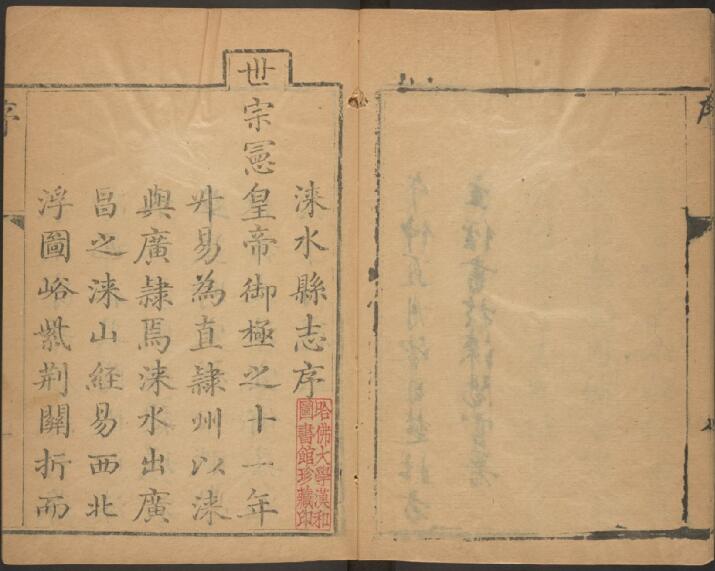 涞水縣志序
世宗憲皇帝御極之十一年
廾易為直隸州以涞
與廣隸焉涞水出廣
昌之涞山経易西北
浮圖峪紫荆關折而
哈佛大學漢和
圖書館珍藏印
序